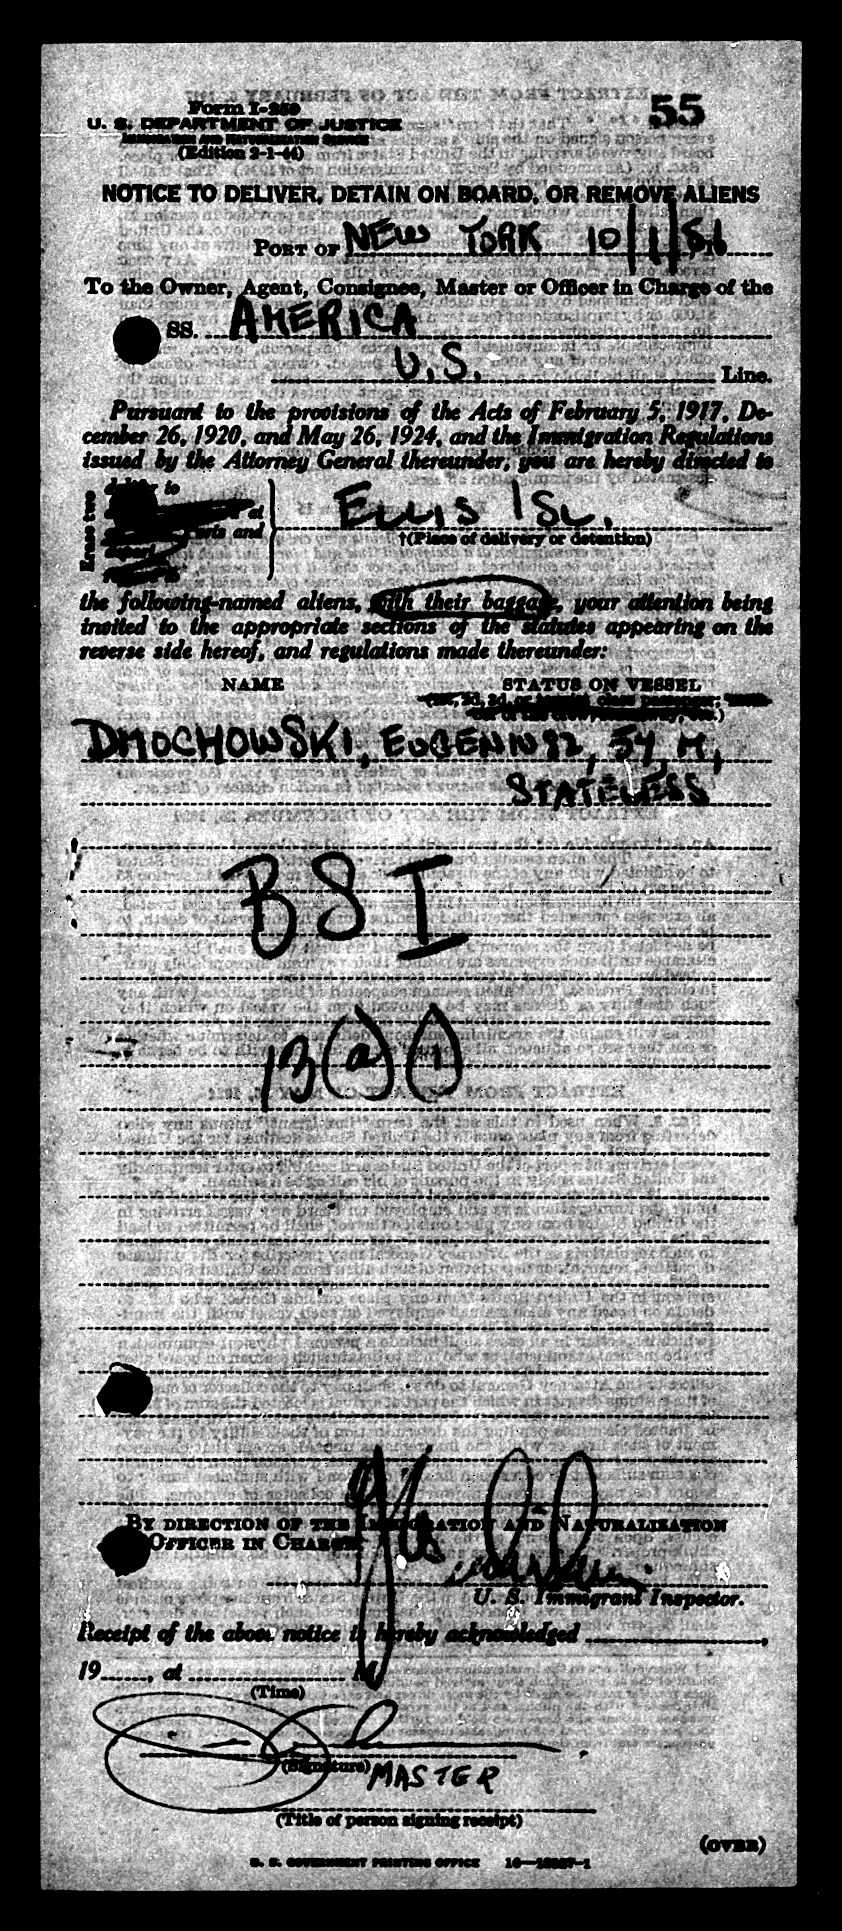 55
Form I-259
U. S. DEPARTMENT OF JUSTICE
IMMIGRATION AND NATURALIZATION SERVICE
(Edition 2-1-44)
NOTICE TO DELIVER, DETAIN ON BOARD, OR REMOVE ALIENS
PORT OF NEW YORK 10/1/51
To the Owner, Agent, Consignee, Master or Officer in Charge of the
SS. AMERICA
U.S. Line.
Pursuant to the provisions of the Acts of February 5, 1917, De-
cember 26, 1920, and May 26, 1924, and the Immigration Regulations
issued by the Attorney General thereunder, you are hereby directed to
Erase two
to
at
and
ELLIS ISL.
†(Place of delivery or detention)
the following-named aliens, with their baggage, your attention being
invited to the appropriate sections of the statutes appearing on the
reverse side hereof, and regulations made thereunder:
NAME STATUS ON VESSEL
DMOCHOWSKI, EUGENIUSZ, 54, M,
STATELESS
BSI
13 (a) (1)
BY DIRECTION OF THE IMMIGRATION AND NATURALIZATION
OFFICER IN CHARGE
U. S. Immigrant Inspector.
Receipt of the above notice is hereby acknowledged
19......, at M
(Time)
(Signature) MASTER
(Title of person signing receipt)
(OVER)
U. S. GOVERNMENT PRINTING OFFICE